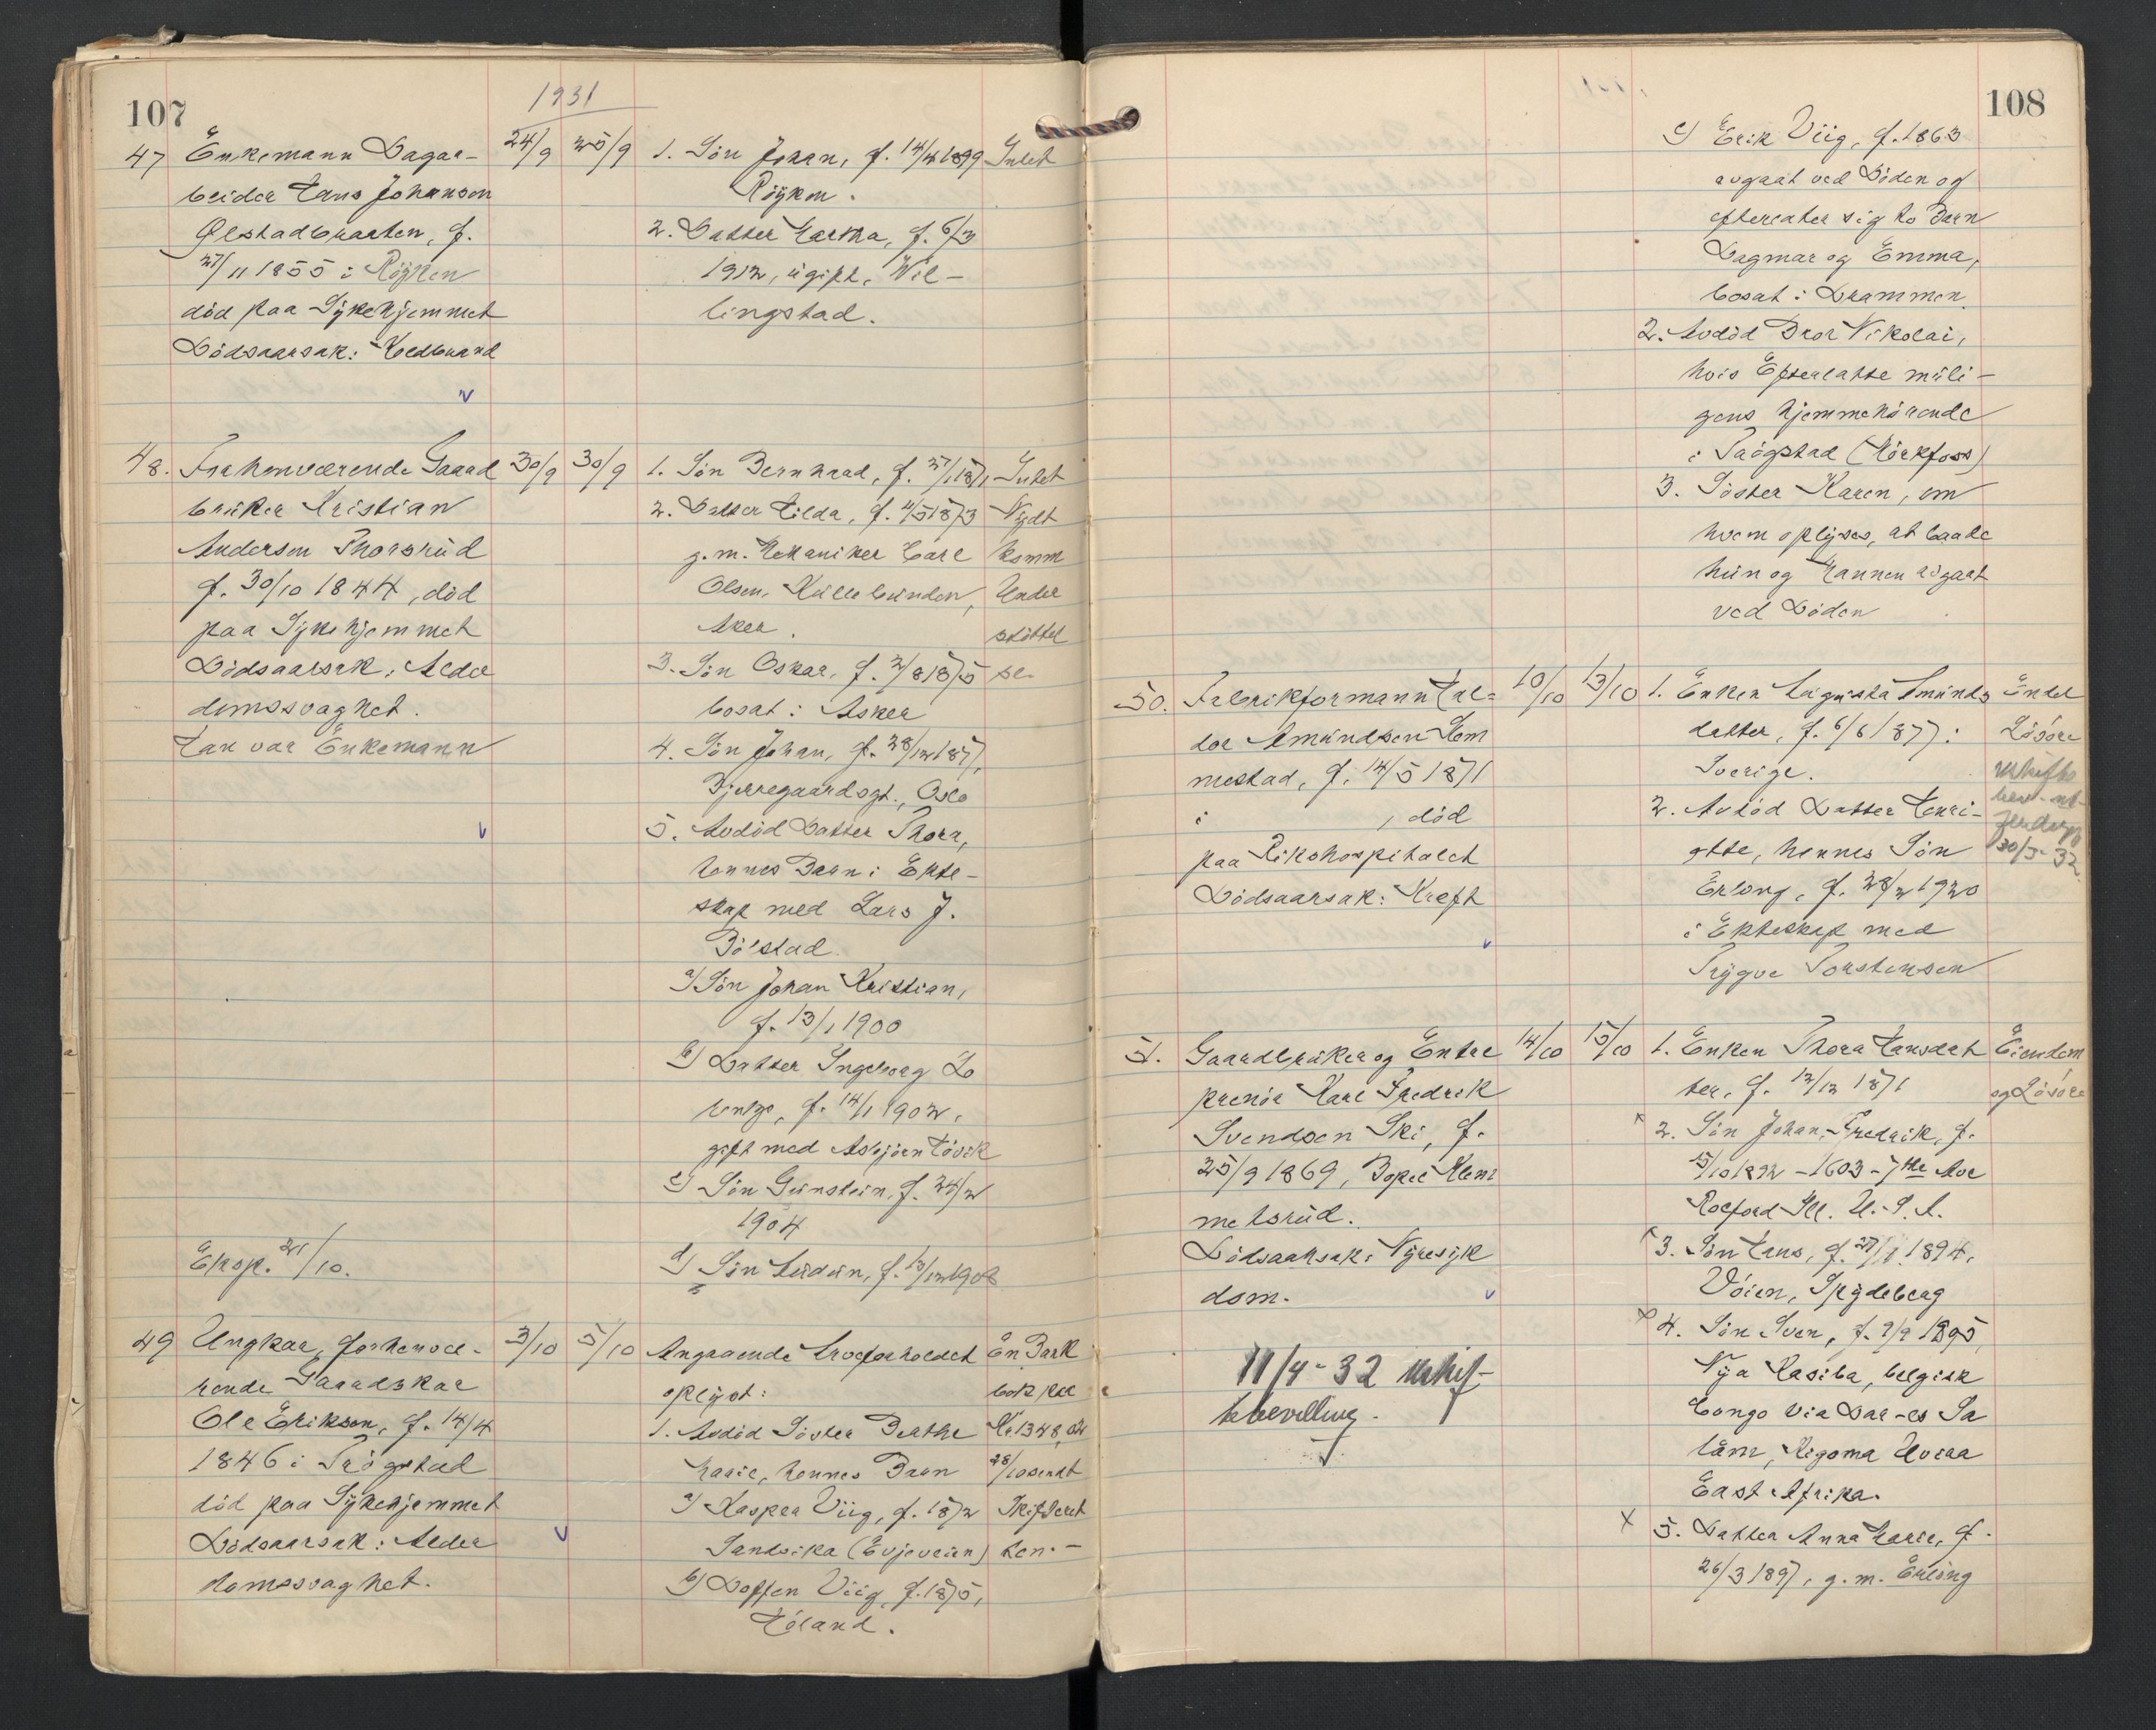 107
1931
47 Enkemann Dagar-
beider Hans Johansen
Ølstadbraaten, f.
27/11 1855 i Röyken
död paa Sykehjemmet
Dödsaarsak: Koldbrand
24/9 25/9
1. Sön Johan, f. 14/4 1899
Röyken.
2. Datter Martha, f. 6/3
1912, ugift, Nil-
lingstad.
Intet
48. Forhenværende Gaard
bruker Kristian
Andersen Thorsrud
f. 30/10 1844, död
paa Sykehjemmet
Dödsaarsak: Alder
domssvaghet.
Han var Enkemann
Eksp. 21/10.
30/9 30/9
1. Sön Bernhard, f. 27/1 1871
2. Datter Hilda, f. 4/5 1873
g. m. Mekaniker Carl
Olsen, Kullebunden,
Aker.
3. Sön Oskar, f. 2/8 1875
bosat i Asker
4. Sön Johan, f. 28/12 1877,
Bjerregaardsgt., Oslo
5. Avdöd Datter Thora,
hennes Barn i Ekte-
skap med Lars J.
Bölstad.
a) Sön Johan Kristian,
f. 13/1 1900
b) Datter Ingeborg Lo
f. 14/1 1902,
gift med Asbjörn Hövik
c) Sön Gunstein, f. 24/2
1904
d) Sön Audun, f. 13/12 1908
Intet
Nydt
komm
Under
stöttel
se.
49 Ungkar, forhenvæ-
rende Gaardskar
Ole Eriksen, f. 14/4
1846 i Trögstad
död paa Sykehjemmet
Dödsaarsak: Alder
domssvaghet.
3/10 5/10
Angaaende Arveforholdet
oplyst:
1. Avdöd Söster Berthe
Marie, hennes Barn
a) Kaspra Viig, f. 1872
Sandvika (Evjeveien)
b) Doffen Viig, f. 1875,
Höland.
En Bank
bok paa
Kr 1348,02
28/10 sendt
Skifteret
ten. -
108
c) Erik Viig, f. 1863
avgaat ved Döden og
efterlater sig to Barn
Dagmar og Emma,
bosat i Drammen
2. Avdöd Bror Nikolai,
hvis Efterlatte muli-
gens hjemmehörende
i Trögstad (Mörkfoss)
3. Söster Karen, om
hvem oplyses, at baade
hun og Mannen avgaat
ved Döden
50. Fabrikformann Hal-
dor Amundsen Hem
mestad, f. 14/5 1871
i , död
paa Rikshospitalet
Dödsaarsak: Kreft
10/10 13/10
1. Enken Augusta Amunds
datter, f. 6/6 1877 i
Sverige.
2. Avdöd Datter Henri-
ette, hennes Sön
Erling, f. 28/2 1920
i Ekteskap med
Trygve Torstensen
Endel
Lösöre
Uskifte
bev. ut-
30/5-32.
51. Gaardbruker og Entre
prenör Karl Fredrik
Svendsen Ski, f.
25/9 1869, Bopel Klem
metsrud.
Dödsaarsak: Nyresyk
dom.
11/4-32 uskif-
tebevilling.
14/10 15/10
1. Enken Thora Hansdat
ter, f. 12/12 1871
x 2. Sön Johan Fredrik, f.
15/10 1892 - 1603 - 7the Ave
Rocford Ill. U.S.A.
x 3. Sön Hans, f. 27/1 1894,
Vöien, Spydeberg
x 4. Sön Sven, f. 9/9 1895,
Nya Kasiba, belgisk
Congo via Dar-es Sa
lam, Kigoma Uvira
East Afrika.
x 5. Datter Anna Marie, f.
26/3 1897, g. m. Erling
Eiendom
og Lösöre